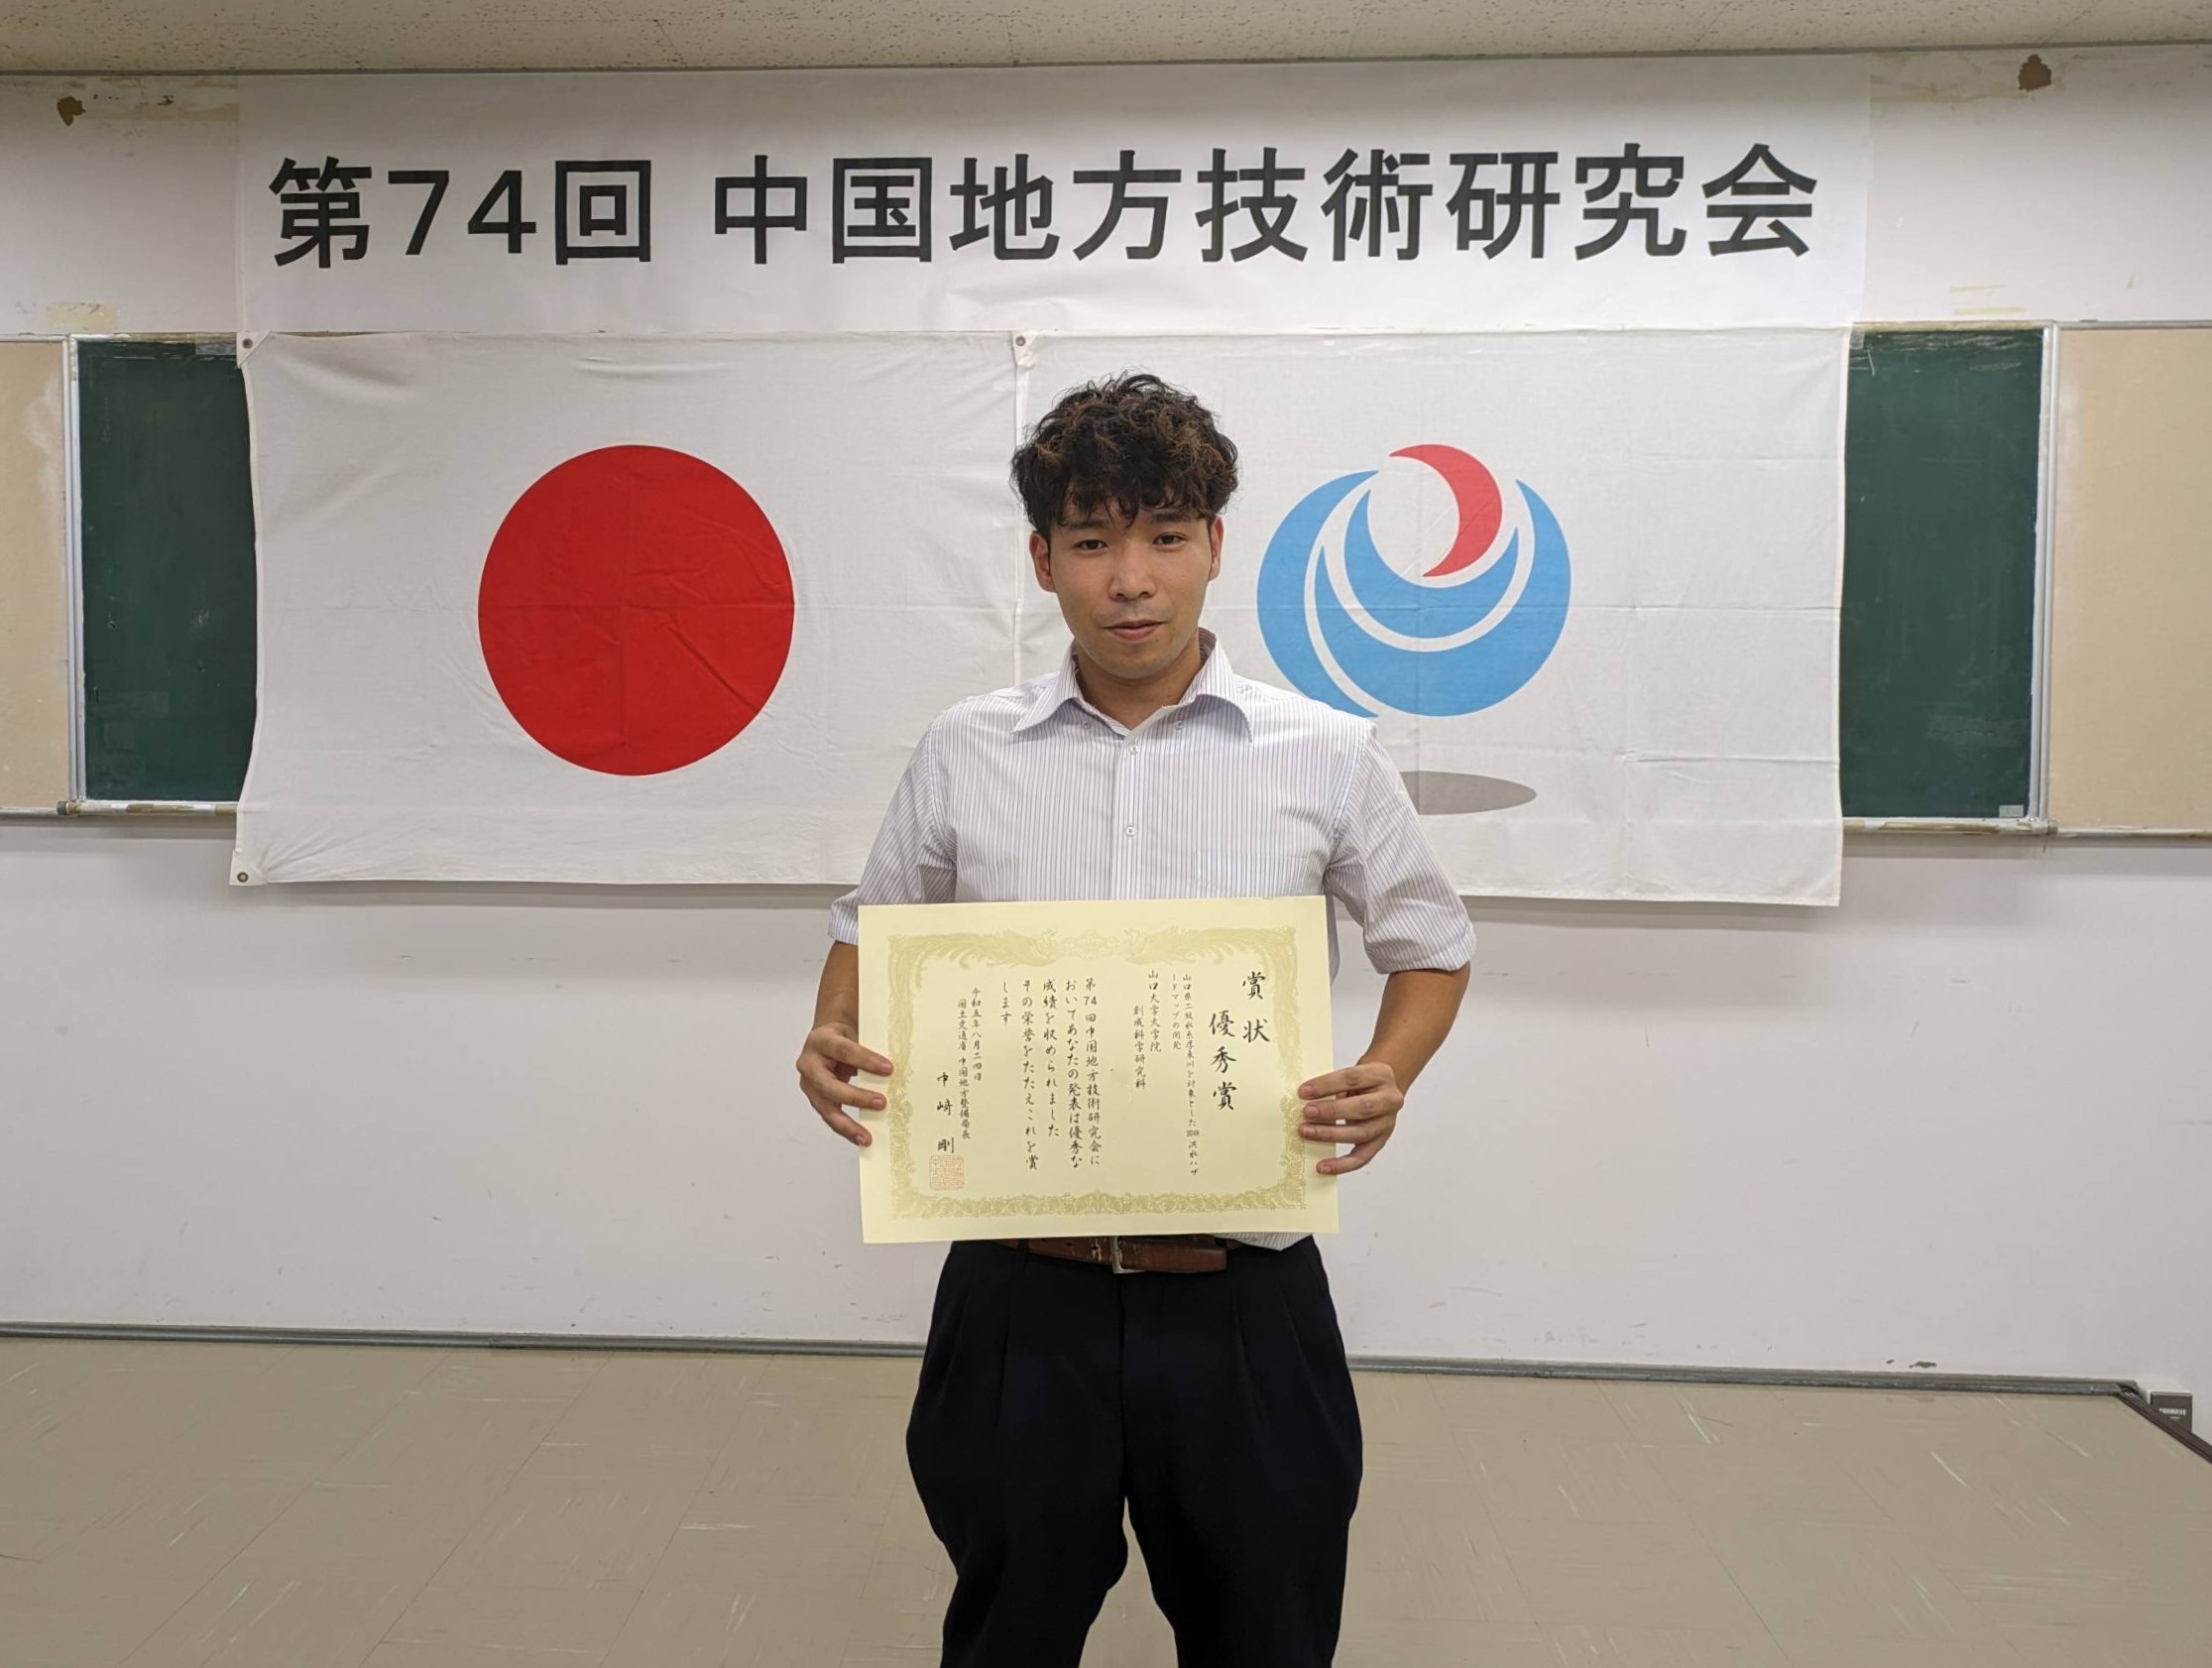 第74回 中国地方技術研究会
賞状
優秀賞
山口県二級水系厚東川を対象とした 洪水ハザ
ードマップの開発
山口大学大学院
創成科学研究科
第74回中国地方技術研究会に
おいてあなたの発表は優秀な
成績を収められました
その栄誉をたたえこれを賞
します
令和五年八月二四日
国土交通省 中国地方整備局長
中﨑 剛